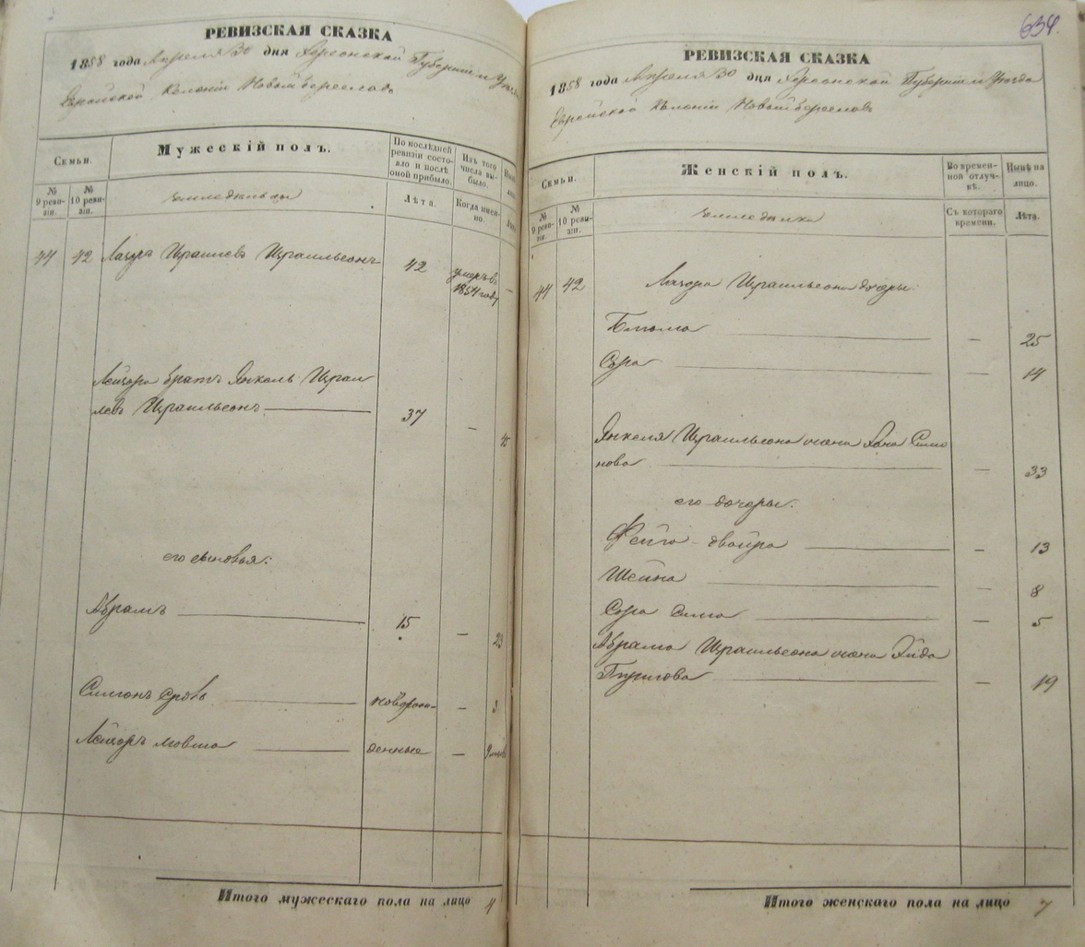 РЕВИЗСКАЯ СКАЗКА
1858 года Апреля 30 дня Херсонской Губерніи и Уезда
Еврейской Колоніи Новый береславъ
Семьи.
Мужескій полъ.
По последней ревизіи состояло и после оной прибыло.
Изъ того числа выбыло.
№ 9 ревизіи.
№ 10 ревизіи.
Лѣта.
Когда именно.
земледельцы
44 42 Лазоръ Израилевъ Израильсонъ 42 умеръ въ 1854 году —
Лейзора братъ Янкель Израи
левъ Израильсонъ 37 —
его сыновья:
Абрамъ 15 — 23
Симонъ Сровъ новорож- — 3
Лейзоръ мовша денные —
Итого мужескаго пола на лицо 4
634
РЕВИЗСКАЯ СКАЗКА
1858 года Апреля 30 дня Херсонской Губерніи и Уезда
Еврейской Колоніи Новый береславъ
Семьи.
Женскій полъ.
Во временной отлучкѣ.
Нынѣ на лицо.
№ 9 ревизіи.
№ 10 ревизіи.
Съ котораго времени.
Лѣта.
44 42 Лазора Израильсона дочеры:
— 25
Сора — 14
Янкеля Израильсона жена Хана Симо
нова — 33
его дочеры:
Фейга-двойра — 13
Шейна — 8
Сора Сима — 5
Абрама Израильсона жена Эйда
— 19
Итого женскаго пола на лицо 7